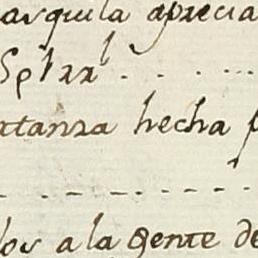 asquila aprecia
atanza hecha
los a la gente de